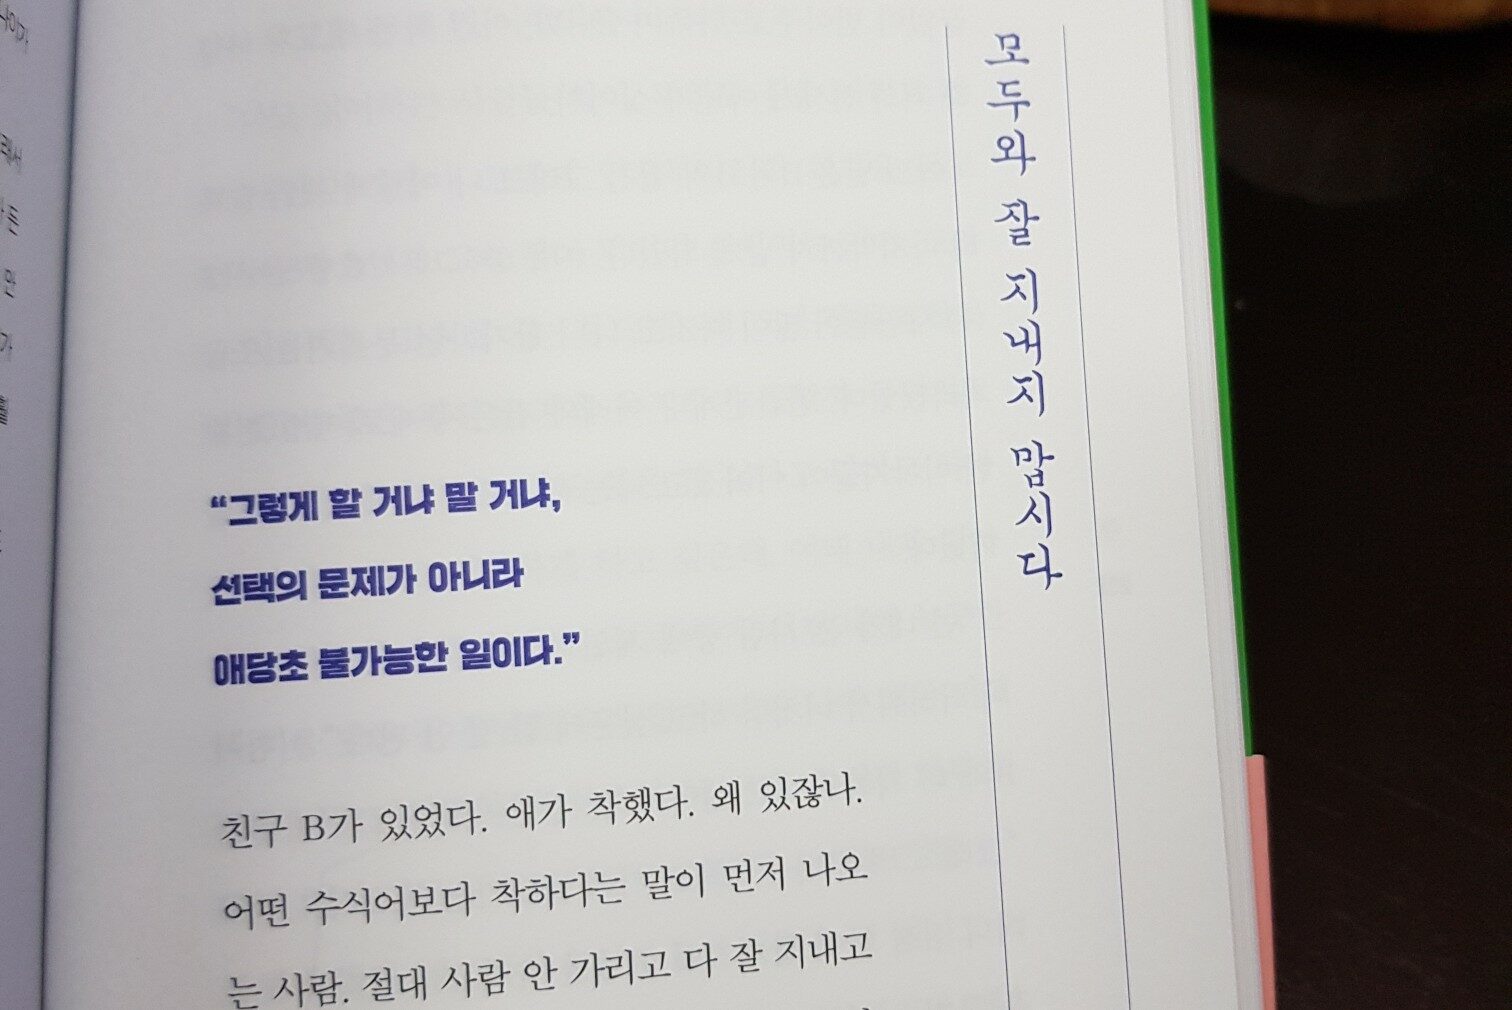 모두와 잘 지내지 맙시다
“그렇게 할 거냐 말 거냐,
선택의 문제가 아니라
애당초 불가능한 일이다.”
친구 B가 있었다. 애가 착했다. 왜 있잖나.
어떤 수식어보다 착하다는 말이 먼저 나오
는 사람. 절대 사람 안 가리고 다 잘 지내고